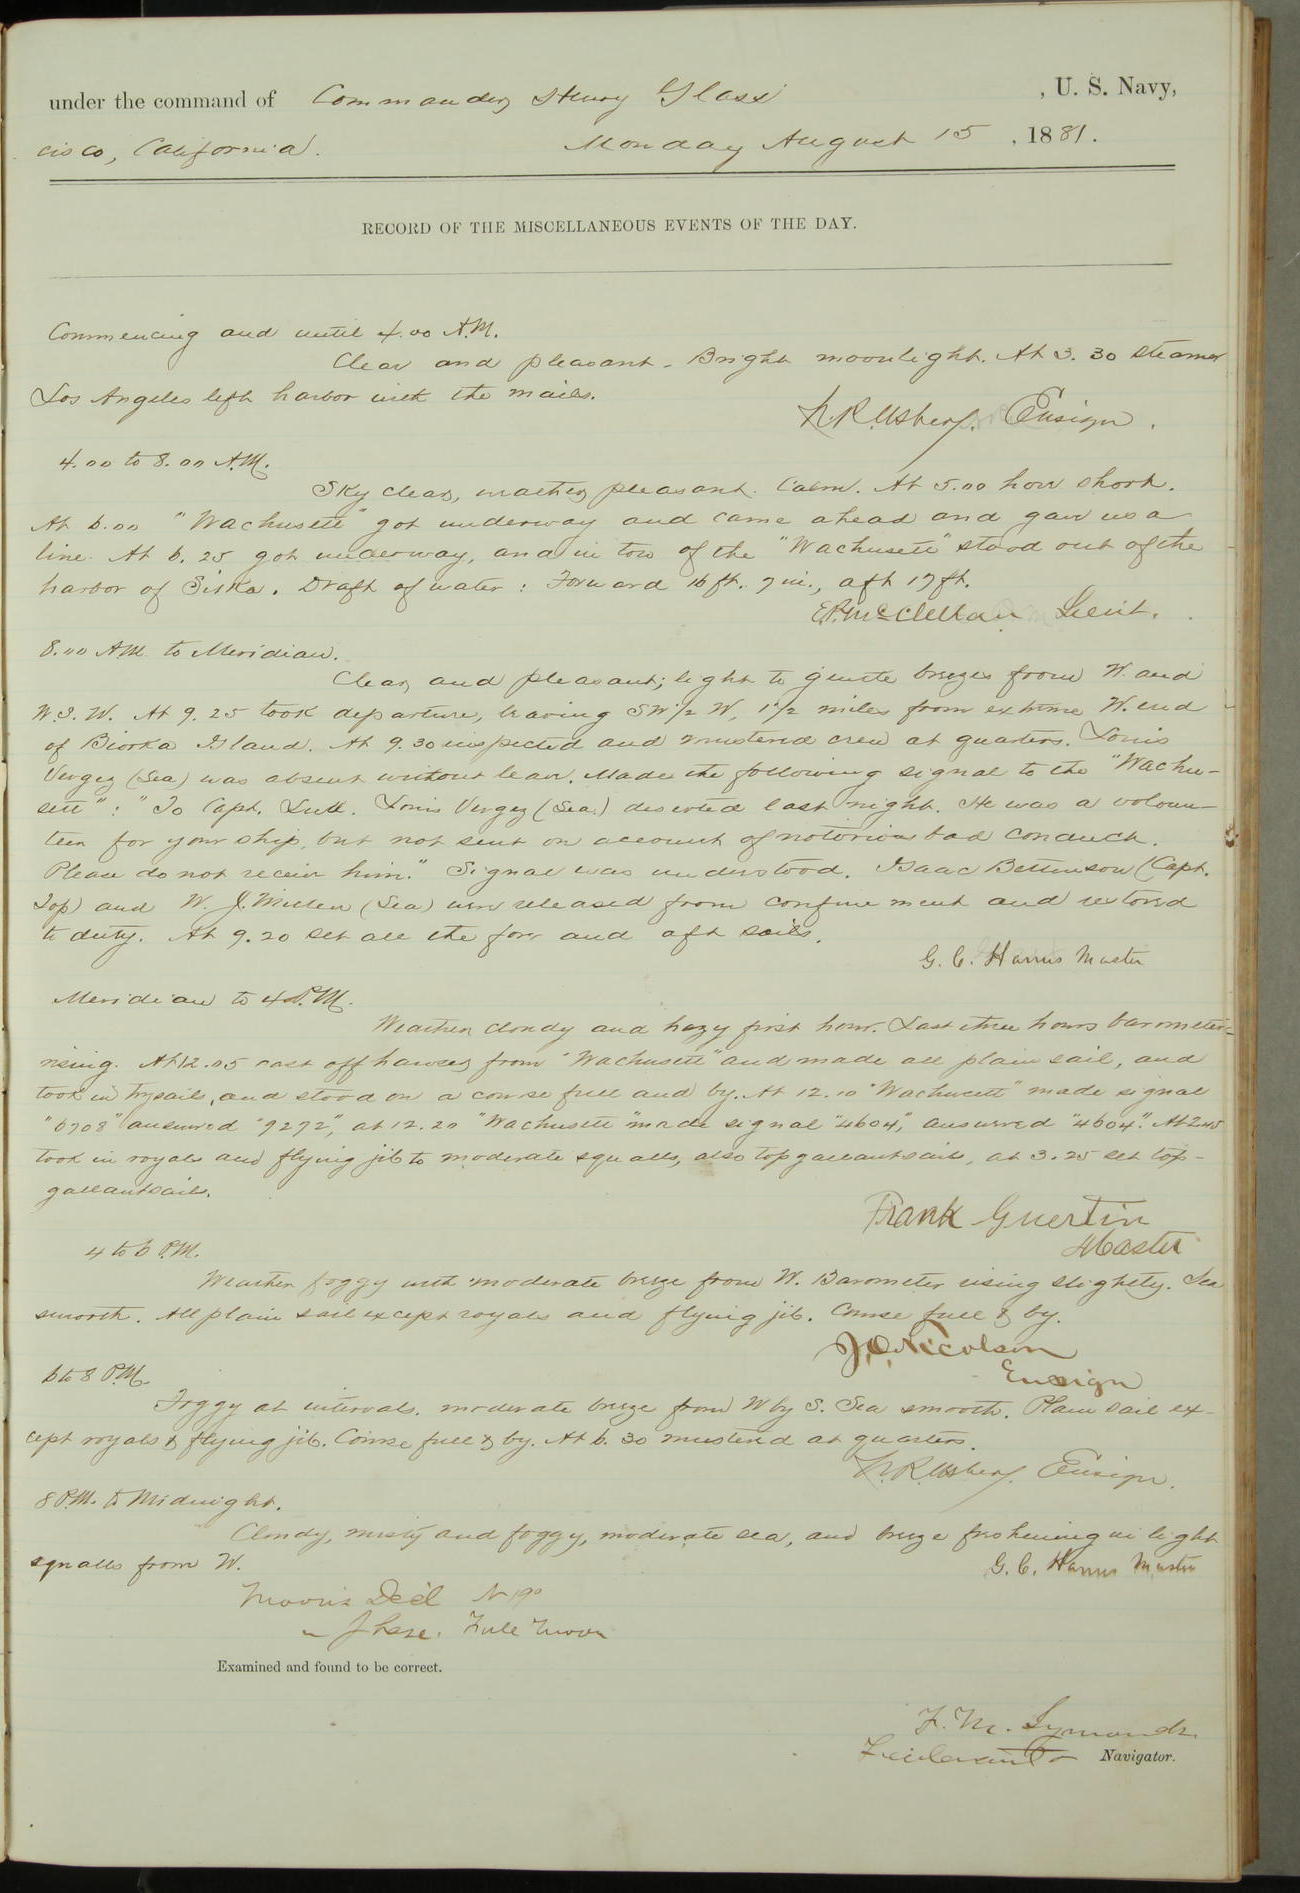 under the command of Commander Henry Glass , U. S. Navy,
cisco, California. Monday August 15 , 1881.
RECORD OF THE MISCELLANEOUS EVENTS OF THE DAY.
Commencing and until 4.00 A.M.
Clear and pleasant. Bright moonlight. At 3.30 steamer
Los Angeles left harbor with the mails.
N.R. Usher, Ensign.
4.00 to 8.00 A.M.
Sky clear, weather pleasant. Calm. At 5.00 hove short.
At 6.00 "Wachusett" got underway and came ahead and gave us a
line. At 6.25 got underway, and in tow of the "Wachusett" stood out of the
harbor of Sitka. Draft of water: Forward 16 ft. 7 in., aft 17 ft.
E.P. McClellan Lieut.
8.00 A.M. to Meridian.
Clear and pleasant; light to gentle breezes from W. and
W.S.W. At 9.25 took departure, bearing SW 1/2 W, 1 1/2 miles from extreme W. end
of Biorka Island. At 9.30 inspected and mustered crew at quarters. Louis
Vergez (Sea) was absent without leave. Made the following signal to the "Wachu-
sett": "To Capt. Lull. Louis Vergez (Sea.) deserted last night. He was a volun-
teer for your ship, but not sent on account of notorious bad conduct.
Please do not receive him." Signal was understood. Isaac Bettinson (Capt.
Top) and W. J. Millen (Sea) were released from confinement and restored
to duty. At 9.20 set all the fore and aft sails.
G. C. Hanus Master
Meridian to 4 P.M.
Weather cloudy and hazy first hour. Last three hours barometer
rising. At 12.05 cast off hawser from "Wachusett" and made all plain sail, and
took in trysails, and stood on a course full and by. At 12.10 "Wachusett" made signal
"6708" answered "9272", at 12.20 "Wachusett" made signal "4604", answered "4604". At 2.45
took in royals and flying jib to moderate squalls, also topgallantsails, at 3.25 set top-
gallantsails.
Frank Guertin
Master
4 to 6 P.M.
Weather foggy with moderate breeze from W. Barometer rising slightly. Sea
smooth. All plain sail except royals and flying jib. Course full & by.
J.O. Nicolson
Ensign
6 to 8 P.M.
Foggy at intervals. moderate breeze from W by S. Sea smooth. Plain sail ex-
cept royals & flying jib. Course full & by. At 6.30 mustered at quarters.
N.R. Usher, Ensign.
8 P.M. to Midnight.
Cloudy, misty and foggy, moderate sea, and breeze freshening in light
squalls from W.
G. C. Hanus Master
Moon's Decl N 19°
" Phase. Full Moon
Examined and found to be correct.
F. M. Symonds
Lieutenant Navigator.